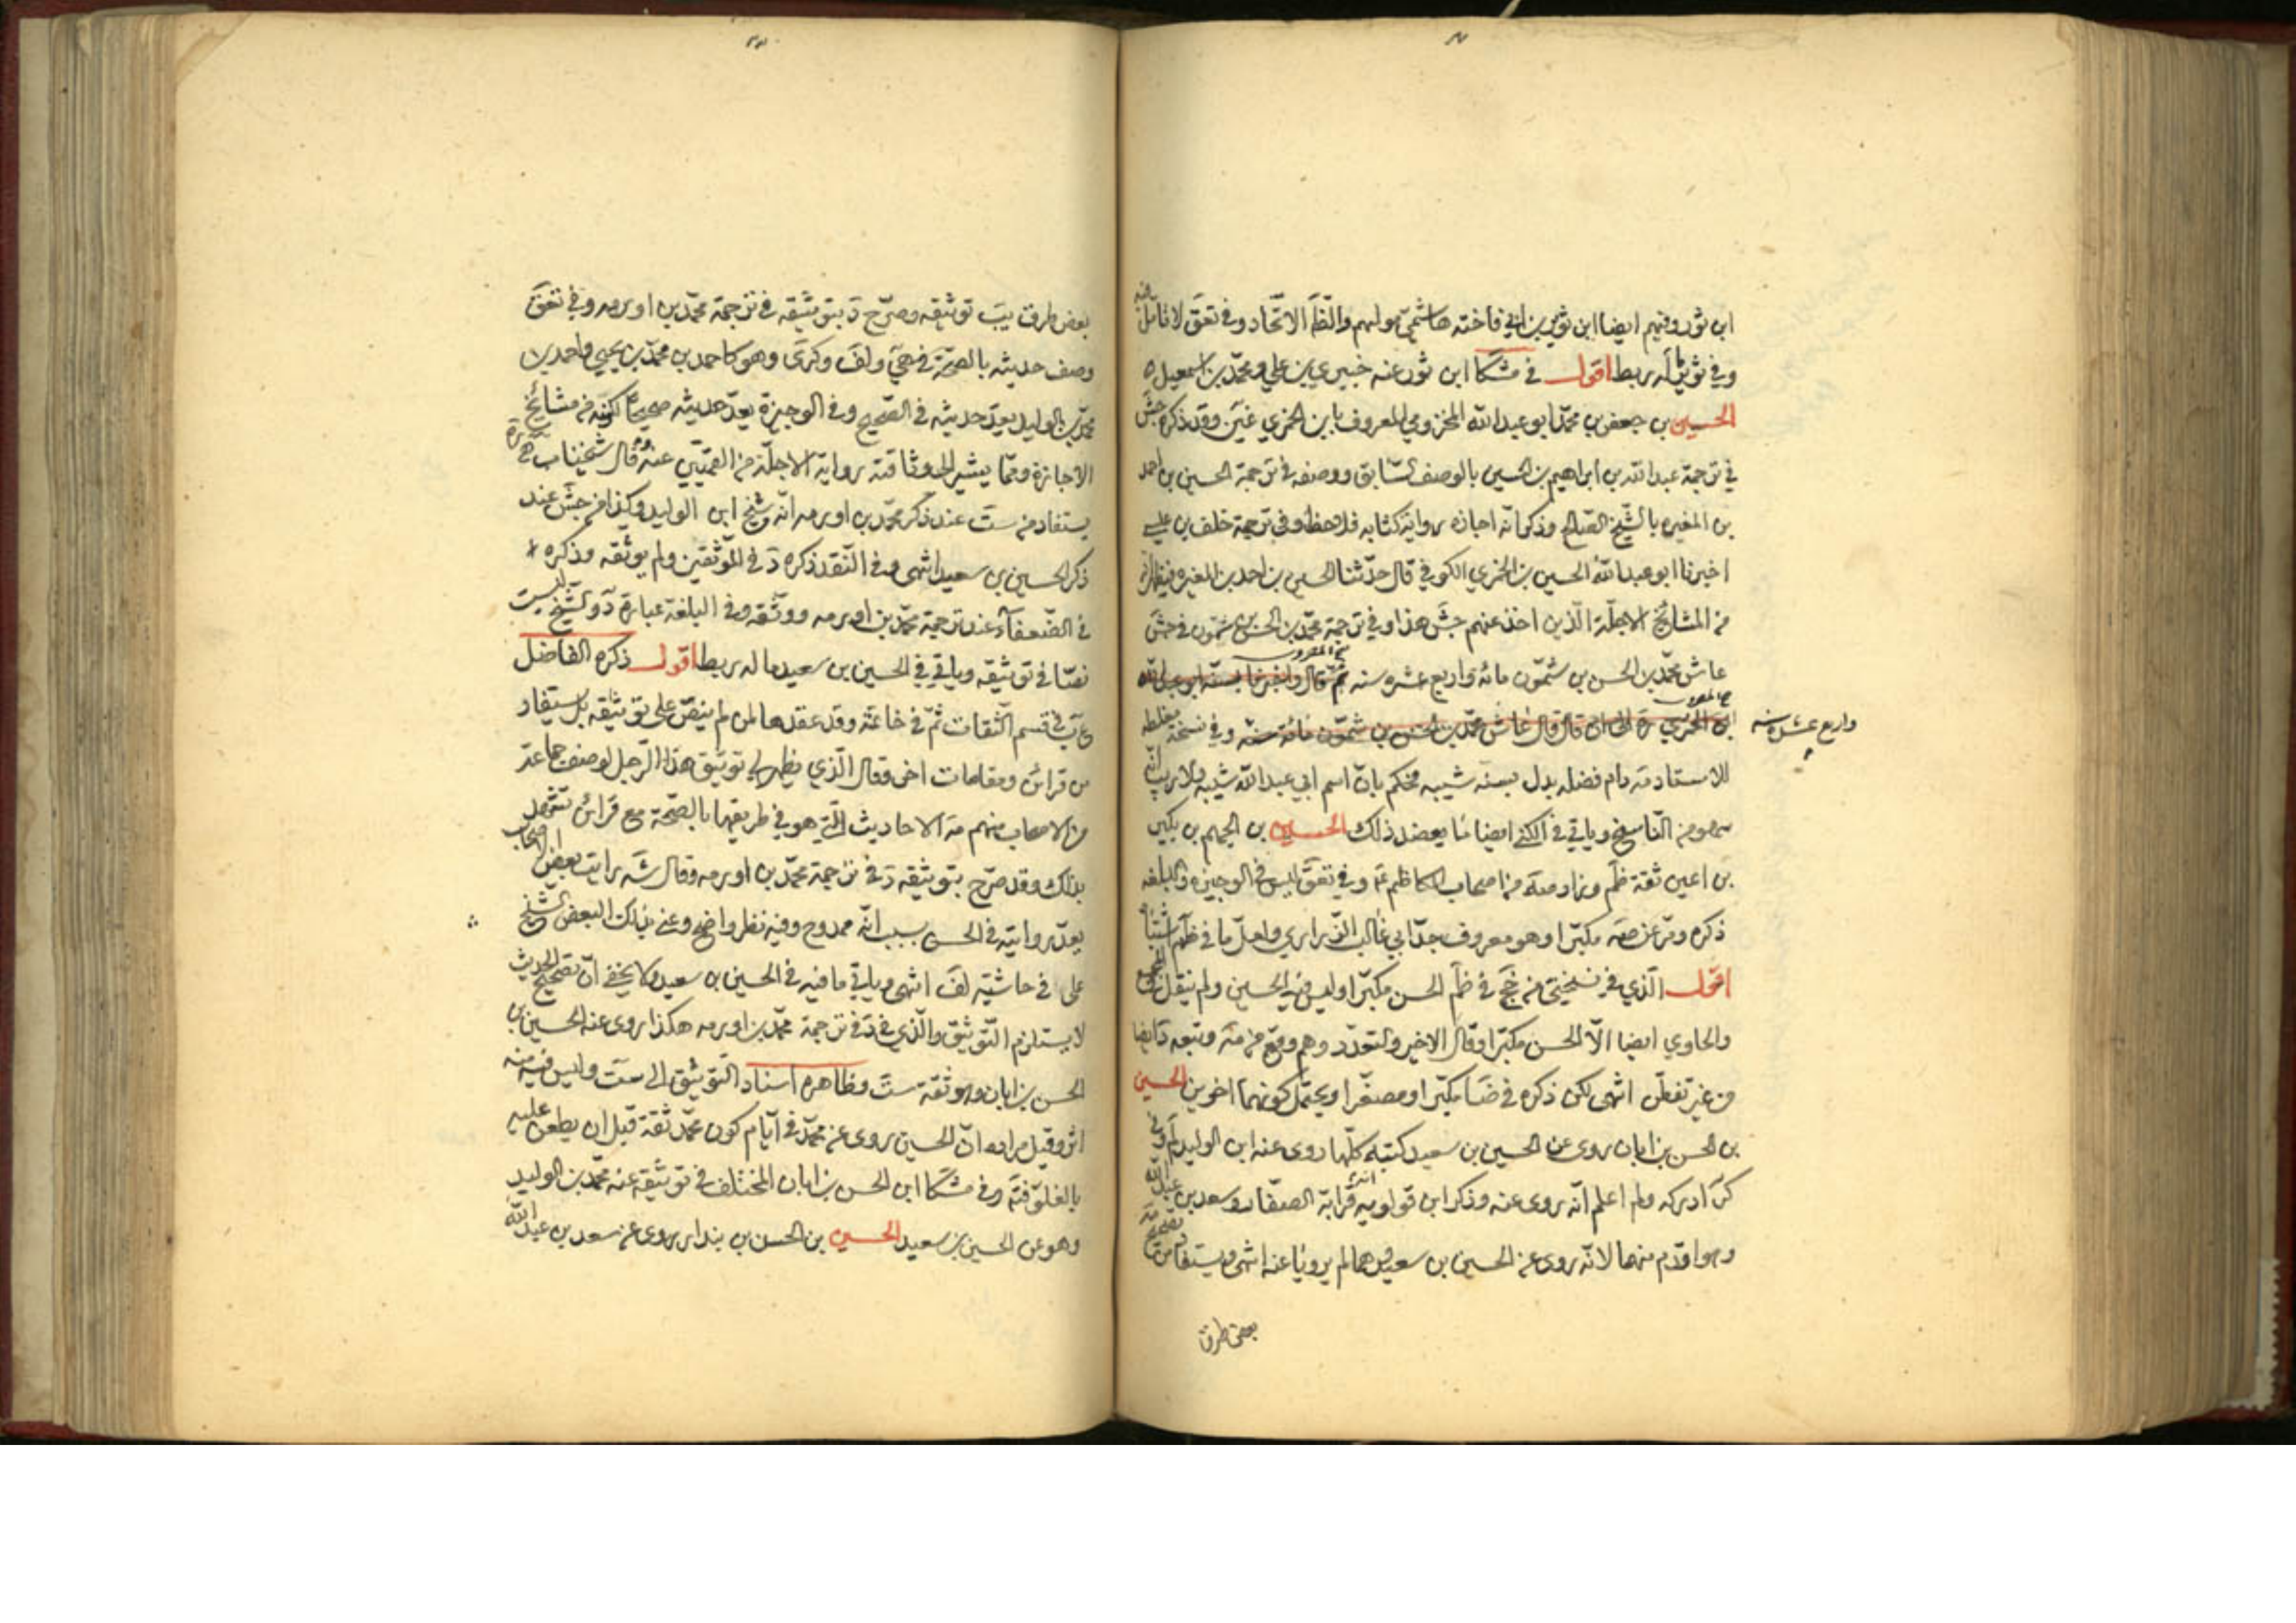 ابن ثور وفيهم ايضا ابن ثوير بن ابي فاختة هاشمي مولاهم والظّم الاتّحاد وفي تعق لا تأمّل فيه
وفي ثوير ماله ربط اقول في مشكا ابن ثور عنه خيبري بن علي ومحمّد بن اسمعيل ه
الحسين بن جعفر بن محمّد ابو عبد الله المخزومي المعروف بابن الخمري غير وقد ذكره جش
في ترجمة عبد الله بن ابراهيم بن الحسين بالوصف السّابق ووصفه في ترجمة الحسين بن احمد
بن المغيره بالشّيخ الصّالح وذكر انّه اجازه رواية كتابه فلاحظ وفي ترجمة خلف بن عيسى
اخبرنا ابو عبد الله الحسين بن الخمري الكوفي قال حدّثنا الحسين بن احمد بن المغيره فيظهر انّه
من المشائخ الاجلّة الّذين اخذ عنهم جش هذا وفي ترجمة محمّد بن الحسن بن شمّون في جش
عاش محمّد بن الحسن بن شمّون مائة واربع عشره سنه ثمّ قال واخبرنا بسنّه ابو عبد الله
ابن الخمري ره الى ان قال قال عاش محمّد بن الحسن بن شمّون مائة سنة وفي نسخة مغلطة
واربع عشره سنه
للاستاد مه دام فضله بدل بسنه شيبه فحكم بانّ اسم ابي عبد الله شيبه ولا ريب انّه
سهو من النّاسخ وياتي في الكنى ايضا ما يعضد ذلك الحسين بن الجهم بن بكير
بن اعين ثقة ظم وزاد صه من اصحاب الكاظم ع وفي تعق ليس في الوجيزه والبلغه
ذكره ومرّ عن صه مكبّرا وهو معروف جدّ ابي غالب الزّراري ولعلّ ما في ظم اشتباه
اقول الّذي في نسختي من جخ في ظم الحسن مكبّرا وليس فيه الحسين ولم ينقل المجمع
والحاوي ايضا الّا الحسن مكبّرا وقال الاخير والتعدّد وهم وقع من مه وتبعه د ايضا
من غير تفطّن انتهى لكن ذكره في ضا مكبّرا ومصغّرا ويحتمل كونهما اخوين الحسين
بن الحسن بن ابان روى عن الحسين بن سعيد كتبه كلّها روى عنه ابن الوليد لم وفي
كر ادركه ولم اعلم انّه روى عنه وذكر ابن قولويه انّه قرابة الصفّار وسعد بن عبد الله
وهو اقدم منهما لانّه روى عن الحسين بن سعيد وهما لم يرويا عنه انتهى ويستفاد من تصحيح مه
بعض طرق
بعض طرق يب توثيقه وصرّح د بتوثيقه في ترجمة محمّد بن اورمه وفي تعق
وصف حديثه بالصحّة في هي ولف وكرى وهو كاحمد بن محمّد بن يحيى واحمد بن
محمّد بن الوليد يعدّ حديثه في الصّحيح وفي الوجيزة يعدّ حديثه صحيحا لكونه من مشائخ
الاجازة وممّا يشير الى وثاقته رواية الاجلّة من القمّيين عنه وقال شيخنا
يستفاد من ست عند ذكر محمّد بن اورمه انّه شيخ ابن الوليد وكذا من جش عند
ذكر الحسين بن سعيد انتهى وفي النّقد ذكره د في الموثّقين ولم يوثّقه وذكره
في الضّعفاء عند ترجمة محمّد بن اورمه ووثّقه وفي البلغة عبارة د والشّيخ ليست
نصّا في توثيقه وياتي في الحسين بن سعيد ماله ربط اقول ذكره الفاضل
ع ب في قسم الثّقات ثمّ في خاتمة وقد عقدها لمن لم ينصّ على توثيقه بل يستفاد
من قرائن ومقامات اخر وقال الّذي يظهر لي توثيق هذا الرّجل لوصف جماعة
من الاصحاب منهم مه الاحاديث الّتي هو في طريقها بالصّحة مع قرائن تشهد
بذلك وقد صرّح بتوثيقه د في ترجمة محمّد بن اورمه وقال شه رايت بعض اصحاب
يعدّ روايته في الحسن بسبب انّه ممدوح وفيه نظر واضح وعنى بذلك البعض الشّيخ
على في حاشية لف انتهى وياتي ما فيه في الحسين بن سعيد ولا يخفى انّ تصحيح الحديث
لا يستلزم التّوثيق والّذي في د في ترجمة محمّد بن اورمه هكذا روى عنه الحسين بن
الحسن بن ابان وهو ثقة ست وظاهره اسناد التوثيق الى ست وليس فيه منه
اثر وقيل مراده انّ الحسين روى عن محمّد في ايّام كون محمّد ثقة قبل ان يطعن عليه
بالغلوّ فتم وفي مشكا ابن الحسن بن ابان المختلف في توثيقه عنه محمّد بن الوليد
وهو عن الحسين بن سعيد الحسين بن الحسن بن بندار روى عن سعد بن عبد الله